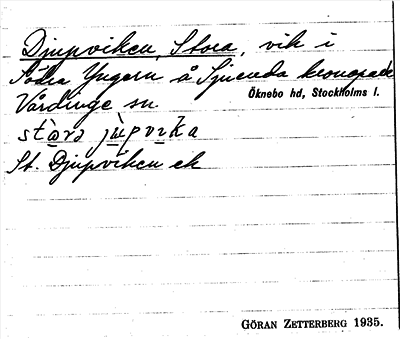 Djupviken, Stora, vik i
Södra Yngern å Sjunda kronopark
Vårdinge sn. Öknebo hd, Stockholms l.
stɷrɔ jùpvıka
St. Djupviken ek
GÖRAN ZETTERBERG 1935.